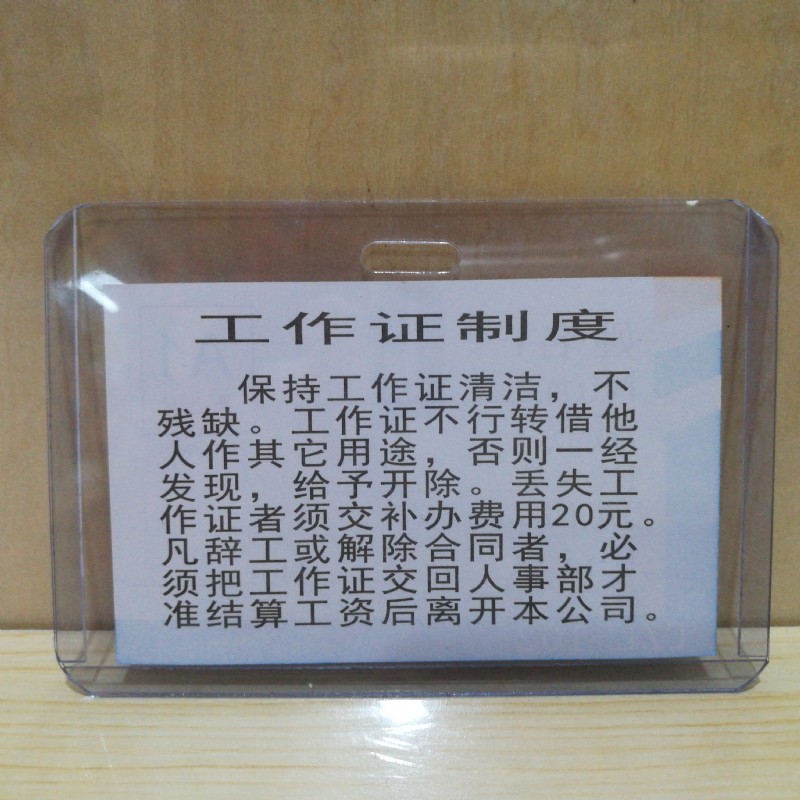 工作证制度
保持工作证清洁，不
残缺。工作证不行转借他
人作其它用途，否则一经
发现，给予开除。丢失工
作证者须交补办费用20元。
凡辞工或解除合同者，必
须把工作证交回人事部才
准结算工资后离开本公司。